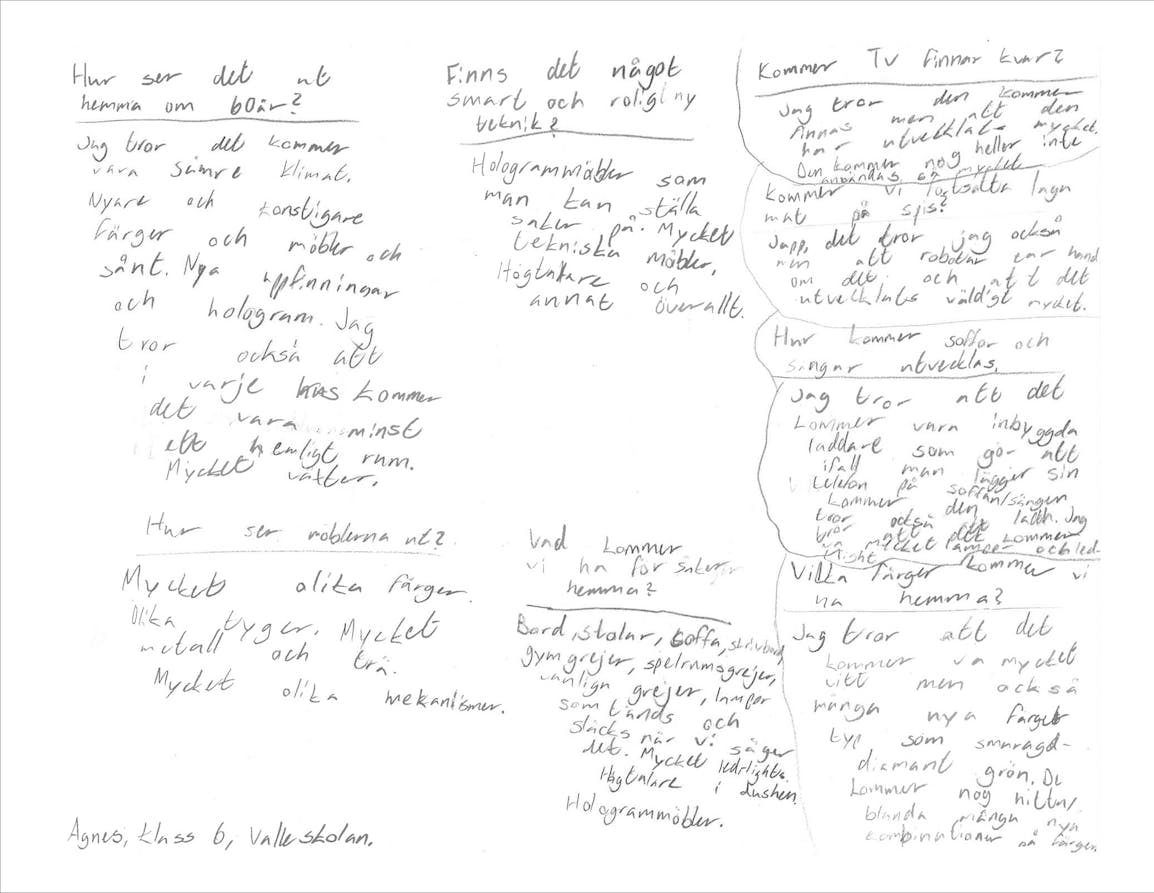 Hur ser det ut
hemma om 60år?
Jag tror det kommer
vara sämre klimat.
Nyare och konstigare
färger och möbler och
sånt. Nya uppfinningar
och hologram. Jag
tror också att
i varje hus kommer
det vara minst
ett hemligt rum.
Mycket växter.
Hur ser möblerna ut?
Mycket olika färger.
Olika tyger. Mycket
metall och trä.
Mycket olika mekanismer.
Agnes, klass 6, Valleskolan.
Finns det något
smart och rolig ny
teknik?
Hologrammöbler som
man kan ställa
saker på. Mycket
tekniska möbler,
Högtalare och
annat överallt.
Vad kommer
vi ha för saker
hemma?
Bord, stolar, soffa, skrivbord,
gymgrejer, spelrumsgrejer,
vanliga grejer, lampor
som tänds och
släcks när vi säger
det. Mycket ledlights.
Högtalare i dushen.
Hologrammöbler.
Kommer Tv finnar kvar?
Jag tror den kommer
finnas men att den
har utvecklats mycket.
Den kommer nog heller inte
användas så mycket
kommer vi fortsätta laga
mat på spis?
Japp, det tror jag också
men att robotar tar hand
om det och att det
utvecklats väldigt mycket.
Hur kommer soffor och
sängar utvecklas.
Jag tror att det
kommer vara inbyggda
laddare som gör att
ifall man lägger sin
telefon på soffan/sängen
kommer den ladda. Jag
tror också
tror att det kommer
va mycket lampor och led-
light
Vilka färger kommer vi
ha hemma?
Jag tror att det
kommer va mycket
vitt men också
många nya färger
typ som smaragd-
diamant grön. De
kommer nog hitta/
blanda många nya
kombinationer på färger.